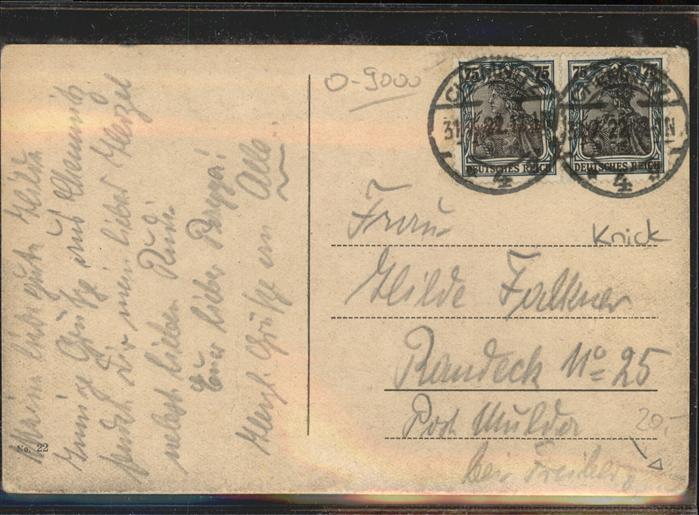 Meine liebe gute Hilde
Innige Grüße aus Chemnitz
sendet Dir mein liebes Herzel
nebst lieben Rudi
Euer lieber Pappa!
Herzl. Grüße an Alle.
No. 22
0-9000
75 75
DEUTSCHES REICH
75
DEUTSCHES REICH
CHEMNITZ
4
4
Frau
Knick
Hilde Falkner
Randeck No 25
Post Mulda
20,-
bei Freiberg